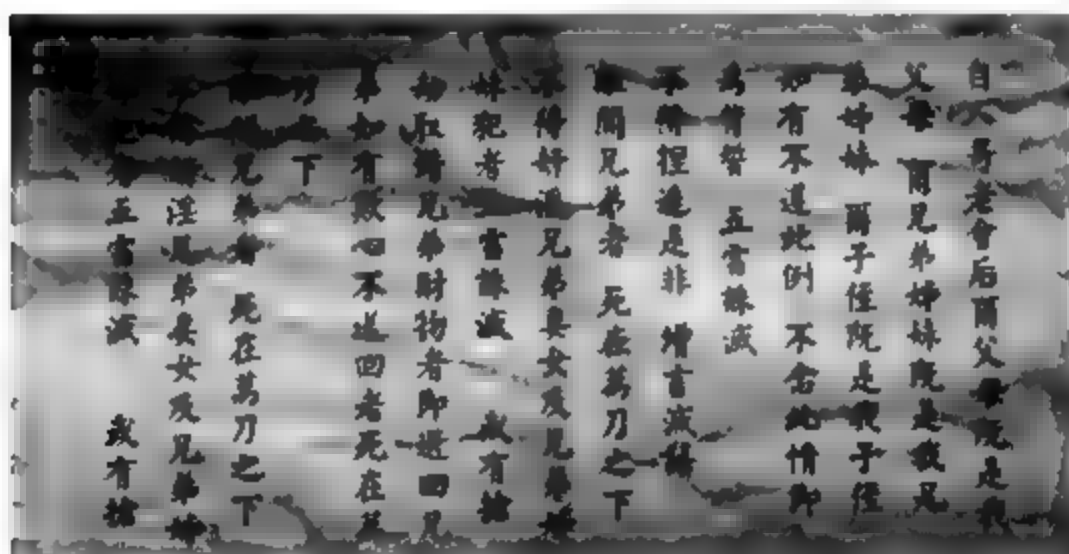 自入哥老會后爾父母既是我
父母 爾兄弟姊妹既是我兄
弟姊妹 爾子侄既是我子侄
如有不遵此例 不念此情即
為背誓 五雷誅滅
不得捏造是非 增言減語
離間兄弟者 死在萬刀之下
不得奸淫兄弟妻女及兄弟姊
妹犯者 五雷誅滅 或有搶
劫取竊兄弟財物者即送回兄
弟如有欺心不送回者死在萬
刀下
兄弟者 死在萬刀之下
淫兄弟妻女及兄弟姊
五雷誅滅 或有搶